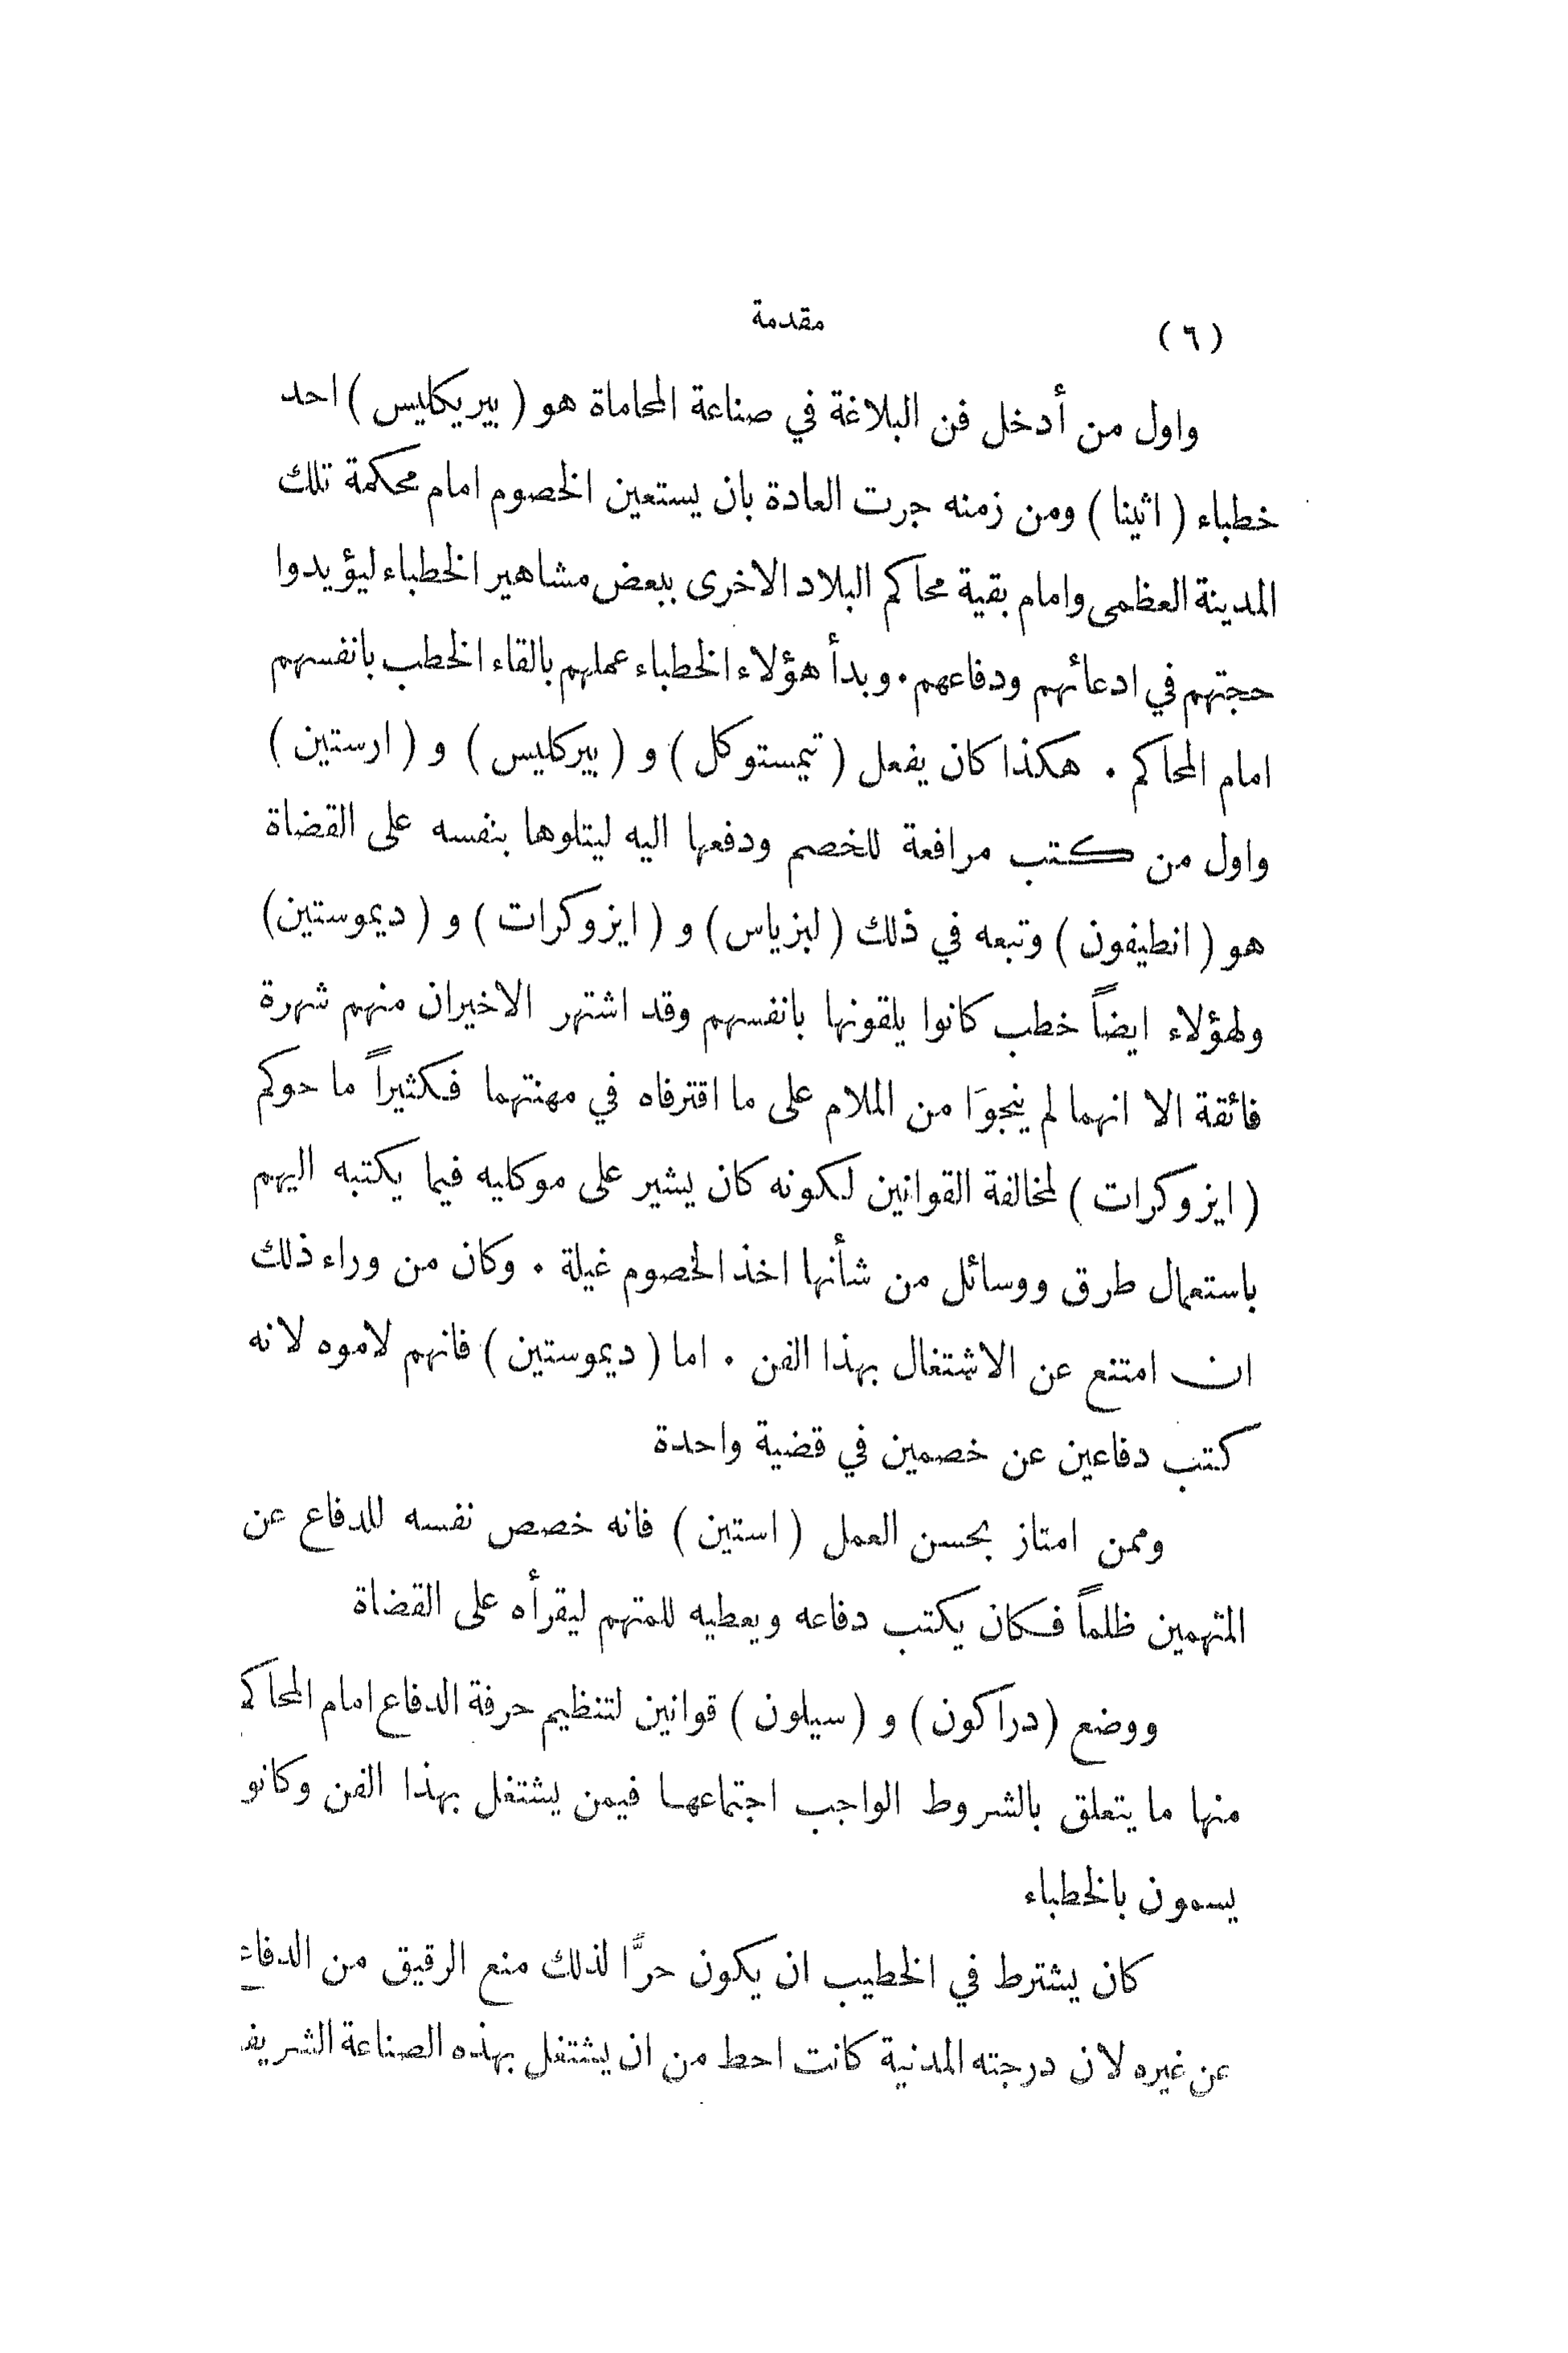 (٦)
مقدمة
واول من أدخل فن البلاغة في صناعة المحاماة هو ( بيريكليس ) احد
خطباء ( اثينا ) ومن زمنه جرت العادة بان يستعين الخصوم امام محكمة تلك
المدينة العظمى وامام بقية محاكم البلاد الاخرى ببعض مشاهير الخطباء ليؤيدوا
حجتهم في ادعائهم ودفاعهم . وبدأ هؤلاء الخطباء عملهم بالقاء الخطب بانفسهم
امام المحاكم . هكذا كان يفعل ( تيمستوكل ) و ( بيركليس ) و ( ارستين )
واول من كتب مرافعة للخصم ودفعها اليه ليتلوها بنفسه على القضاة
هو ( انطيفون ) وتبعه في ذلك ( ليزياس ) و ( ايزوكرات ) و ( ديموستين )
ولهؤلاء ايضاً خطب كانوا يلقونها بانفسهم وقد اشتهر الاخيران منهم شهرة
فائقة الا انهما لم ينجوَا من الملام على ما اقترفاه في مهنتهما فكثيراً ما حوكم
( ايزوكرات ) لمخالفة القوانين لكونه كان يشير على موكليه فيما يكتبه اليهم
باستعمال طرق ووسائل من شأنها اخذ الخصوم غيلة . وكان من وراء ذلك
ان امتنع عن الاشتغال بهذا الفن . اما ( ديموستين ) فانهم لاموه لانه
كتب دفاعين عن خصمين في قضية واحدة
وممن امتاز بحسن العمل ( استين ) فانه خصص نفسه للدفاع عن
المتهمين ظلماً فكان يكتب دفاعه ويعطيه للمتهم ليقرأه على القضاة
ووضع ( دراكون ) و ( سيلون ) قوانين لتنظيم حرفة الدفاع امام المحاك
منها ما يتعلق بالشروط الواجب اجتماعها فيمن يشتغل بهذا الفن وكانو
يسمون بالخطباء
كان يشترط في الخطيب ان يكون حرًّا لذلك منع الرقيق من الدفاع
عن غيره لان درجته المدنية كانت احط من ان يشتغل بهذه الصناعة الشريف